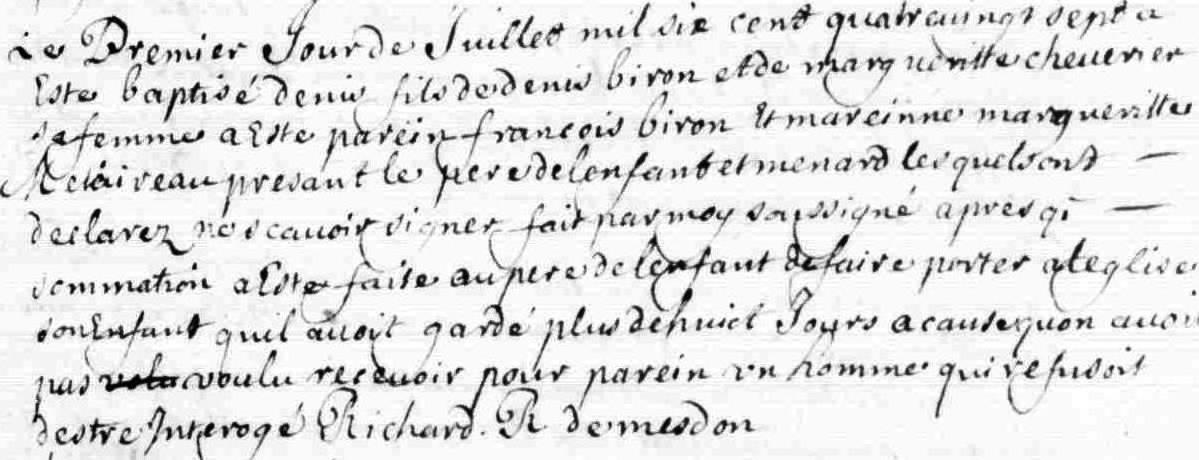 Le Premier Jour de Juillet mil six cent quatrevingt sept a
Este baptisé denis fils de denis biron et de margueritte cheverier
sa femme a Este parein francois biron Et mareinne margueritte
Metaireau presant le pere de lenfant et menard lesquels ont —
declarez ne scavoir signer fait par moy soussigné apres q̃ —
sommation a Este faite au pere de lenfant de faire porter a leglise
son Enfant quil avoit gardé plus de huict Jours a cause quon avoit
pas voulu recevoir pour parein un homme qui refusoit
destre Interogé Richard. R de mesdon